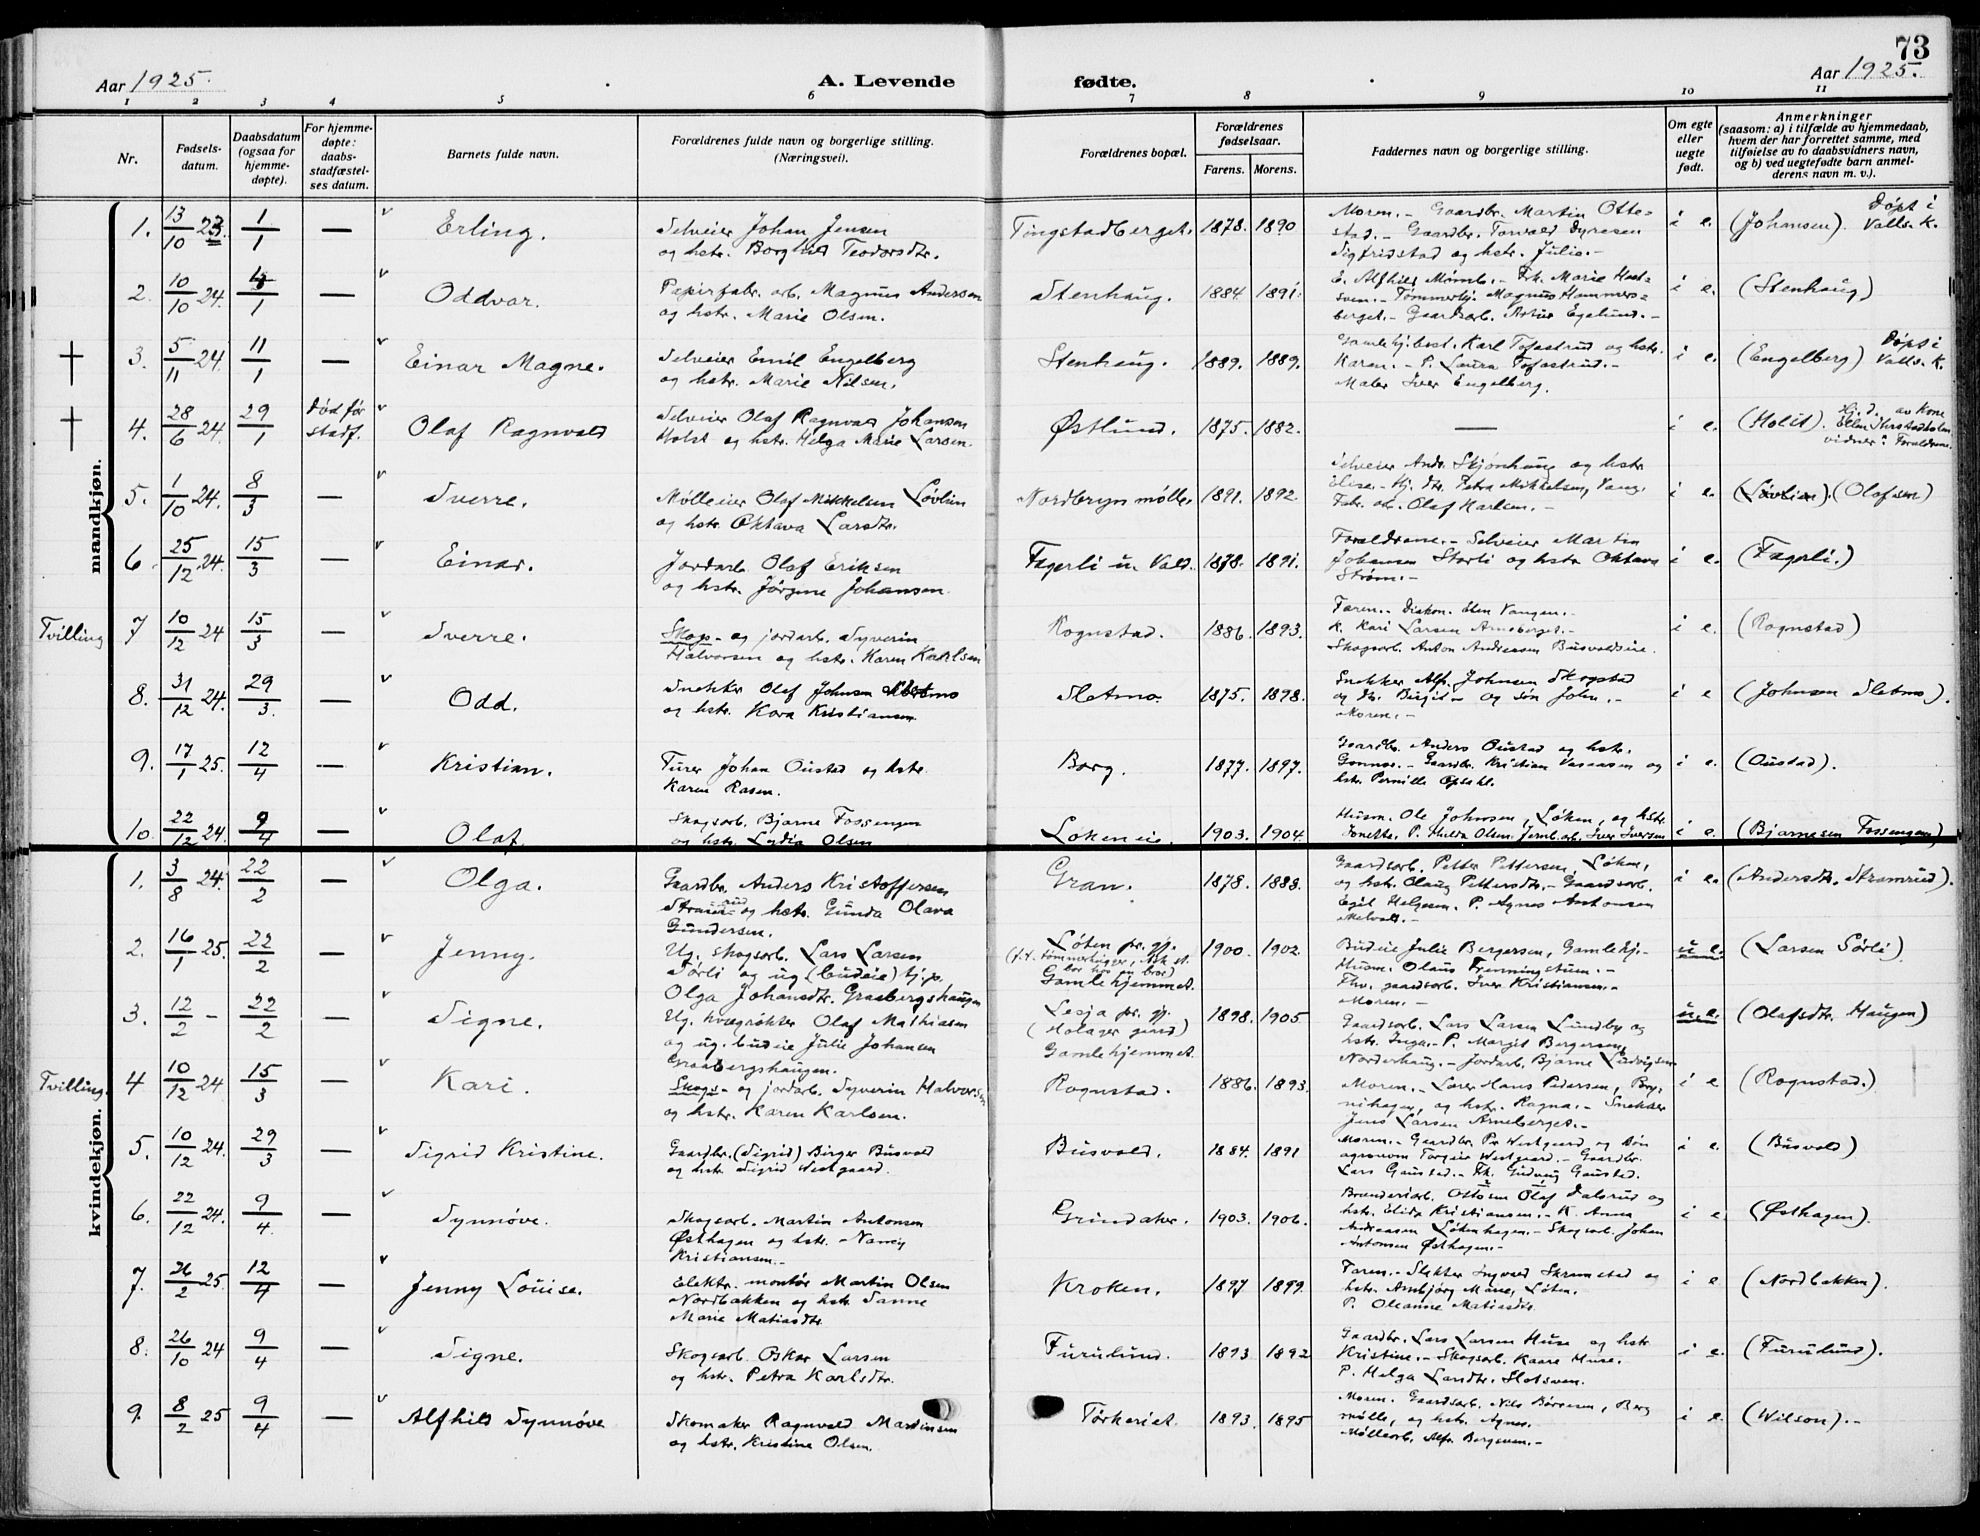 73
Aar 1925.
A. Levende fødte.
Aar 1925.
1 2 3 4 5 6 7 8 9 10 11
Nr.
Fødsels-
datum.
Daabsdatum
(ogsaa for
hjemme-
døpte).
For hjemme-
døpte:
daabs-
stadfæstel-
ses datum.
Barnets fulde navn.
Forældrenes fulde navn og borgerlige stilling.
(Næringsvei).
Forældrenes bopæl.
Forældrenes
fødselsaar.
Farens. Morens.
Faddernes navn og borgerlige stilling.
Om egte
eller
uegte
født.
Anmerkninger
(saasom: a) i tilfælde av hjemmedaab,
hvem der har forrettet samme, med
tilføielse av to daabsvidners navn,
og b) ved uegtefødte barn anmel-
derens navn m. v.).
mandkjøn.
1. 13/10 23. 1/1 — Erling.
Selveier Johan Jensen
og hstr. Borghild Teodorsdtr.
Tingstadberget. 1878. 1890
Moren. - Gaardbr. Martin Otte-
stad. - Gaardbr. Torvald Dyresen
Sigfridstad og hstr. Julie. -
i e. (Johansen). Døpt i
Valls. K.
2. 10/10 24. /1 — Oddvar.
Papirfabr. arb. Magnus Andersen
og hstr. Marie Olsen.
Stenhaug. 1884. 1891.
berget. - Gaardsarb. Egelund. -
i e. (Stenhaug)
3. 5/11 24. 11/1 — Einar Magne.
Selveier Emil Engelberg
og hstr. Marie Nilsen.
Stenhaug. 1889. 1889.
Karl Tofastrud og hstr.
Karen. - P. Laura Tofastrud. -
Maler Iver Engelberg.
i e. (Engelberg) Døpt i
Valls. K.
4. 28/6 24. 29/1 Død før
stadf. Olaf Ragnvald
Selveier Olaf Ragnvald Johansen
Holst og hstr. Helga Marie Larsen.
Østlund. 1875. 1882.
—
i e. (Holst). Hj. d. av Kone
vidner: Forældrene.
5. 1/10 24. 8/3 — Sverre.
Mølleier Olaf Mikkelsen Løvlien
og hstr. Oktava Larsdtr.
Nordbryn mølle. 1891. 1892.
Selveier Andr. Skjønhaug og hstr.
Elise. - Hj. dtr. Petra Mikkelsen, Vang.
Fabr. arb. Olaf Karlsen. -
i e. (Løvlien). (Olafsen)
6. 25/12 24. 15/3 — Einar.
Jordarb. Olaf Eriksen
og hstr. Jørgine Johansen.
Fagerli u. Vold. 1878. 1891.
Forældrene. - Selveier Martin
Johansen Storli og hstr. Oktava
Strøm. -
i e. (Fagerli.)
Tvilling 7 10/12 24 15/3 — Sverre.
Skogs- og jordarb. Syverin
Halvorsen og hstr. Karen Karlsen
Rognstad. 1886. 1893.
Faren. - Diakon. Sten Vangen. -
K. Kari Larsen Arneberget. -
Skogsarb. Anton Andreassen Busvoldseie.
i e. (Rognstad)
8. 31/12 24. 29/3. — Odd.
Snekker Olaf Johnsen Sletmo
og hstr. Kora Kristiansen
Sletmo. 1875. 1898.
Snekker Alf. Johnsen Skogstad
og dtr. Birgit - og søn John. -
Moren. -
i e (Johnsen Sletmo).
9. 17/1 25. 12/4 — Kristian.
Furer Johan Oustad og hstr.
Karen Rasen.
Borg. 1877. 1897.
Gaardbr. Anders Oustad og hstr.
Gonnor. - Gaardbr. Kristian Vasaasen og
hstr. Pernille Opsahl.
i e. (Oustad).
10. 22/12 24. 9/4 — Olaf
Skogsarb. Bjarne Fossengen
og hstr. Lydia Olsen
Løkeneie. 1903. 1904.
Husm. Ole Johnsen, Løken, og hstr.
Jonette. P. Hulda Olsen. Jernb.arb. Iver Iversen
i e. (Bjarnesen Fossengen)
kvindekjøn.
1. 3/8 24. 22/2 — Olga.
Gaardbr. Anders Kristoffersen
Strømsrud og hstr. Gunda Olava
Gundersen.
Gran. 1878. 1883.
Gaardsarb. Petter Pettersen, Løken,
og hstr. Olaug Pettersdtr. - Gaardsarb.
Egil Helgesen. P. Agnes Antonsen
i e. (Andersdtr. Strømrud).
2. 16/1 25. 22/2 — Jenny.
Ug. skogsarb. Lars Larsen
Sørli og ug. (budeie) tj.p.
Olga Johansdtr. Graabergshaugen
Løten pr. gj.
bor hos en bror)
Gamlehjemmet.
1900. 1902.
Budeie Julie Bergersen, Gamlehj. -
Husm. Olaus -
Fhv. gaardsarb. Iver Kristiansen. -
Moren. -
u. e. (Larsen Sørli)
3. 12/2 - 22/2 — Signe.
Ug. kvægrøkter Olaf Mathiasen
og ug. budeie Julie Johansen
Graabergshaugen.
Lesja pr. gj.
Gamlehjemmet.
1898. 1905
Gaardsarb. Lars Larsen Lundby og
hstr. Inga. - P. Margit Bergersen,
Norderhaug. - Jordarb. Bjarne Ludvigsen
u. e. (Olafsdtr. Haugen)
Tvilling. 4 10/12 24 15/3 — Kari.
Skogs- og jordarb. Syverin Halvorsen
og hstr. Karen Karlsen.
Rognstad. 1886. 1893.
Moren. - Lærer Hans Pedersen, Byg-
nihagen, og hstr. Ragna. - Snekker
Jens Larsen Arneberget. -
i e (Rognstad.)
5. 10/12 24. 29/3 — Sigrid Kristine.
Gaardbr. (Sigrid) Birger Busvold
og hstr. Sigrid Westgaard.
Busvold. 1884. 1891
Moren. - Gaardbr. Per Westgaard og søn
agronom Torgeir Westgaard. - Gaardbr.
Lars Gaustad. - Frk. Gudny Gaustad.
i e. (Busvold)
6. 22/12 24. 9/4. — Synnøve.
Skogsarb. Martin Antonsen
Østhagen og hstr. - Nancy
Kristiansen. -
Grindaker. 1903. 1906.
Brænderiarb. Ottosen Olaf Dalsrud og
hstr. Elida Kristiansen. - K. Anna
Andreassen Løkenhagen. - Skogsarb. Johan
Antonsen Østhagen. -
i e (Østhagen).
7. 26/2 25 12/4 — Jenny Louise.
Elektr. montør Martin Olsen
Nordbakken og hstr. Sanne
Marie Matiasdtr.
Kroken. 1897 1899.
Faren. - Slakter Ingvald Skramstad og
hstr. Anbjørg Marie, Løten.
P. Oleanne Matiasdtr.
i e (Nordbakken).
8. 26/10 24 9/4 — Signe.
Skogsarb. Oskar Larsen
og hstr. Petra Karlsdtr.
Furulund. 1893 1892
Gaardbr. Lars Larsen Huse og hstr.
Kristine. - Skogsarb. Kaare Huse.
P. Helga Landtr. Slotsveen.
i e. (Furulund).
9. 8/2 25 9/4 — Alfhild Synnøve
Skomaker Ragnvald Martinsen
og hstr. Kristine Olsen.
Tørkeriet. 1893. 1895
Moren. Gaardsarb. Nils Børresen, Berg
mølle, og hstr. Agnes. -
Møllearb. Alfr. Bergersen. -
i e. (Wilson). -